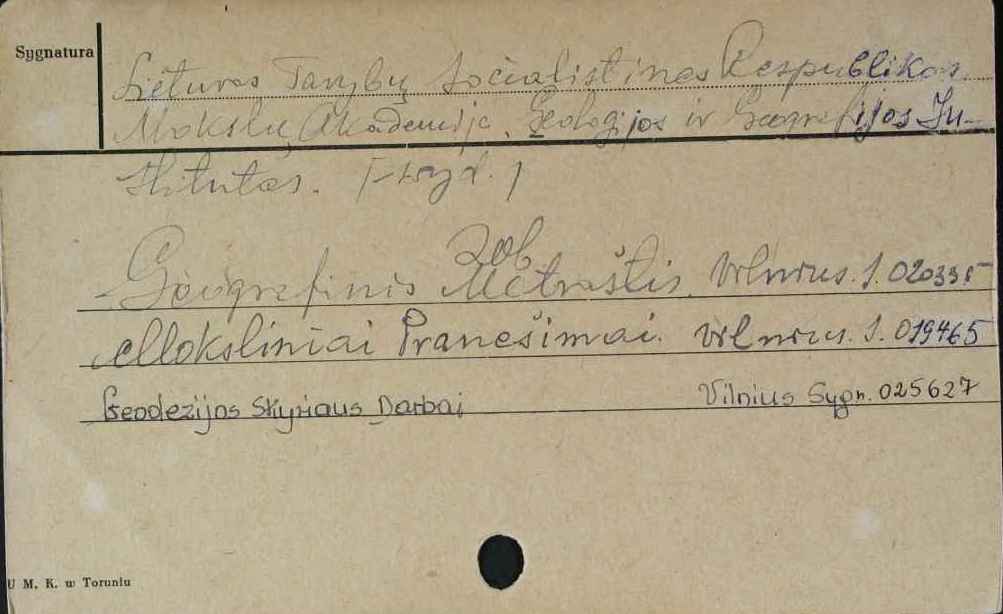 Sygnatura
Lietuvos Tarybų Socialistinės Respublikos
Mokslų Akademija. Geologijos ir Geografijos In-
stitutas. [wyd.]
zob
Geografinis Metraštis. Vilnius. S. 020335
Moksliniai Pranešimai. Vilnius. S. 019465
Geodezijos Skyriaus Darbai Vilnius Sygn. 025627
U M. K. w Toruniu